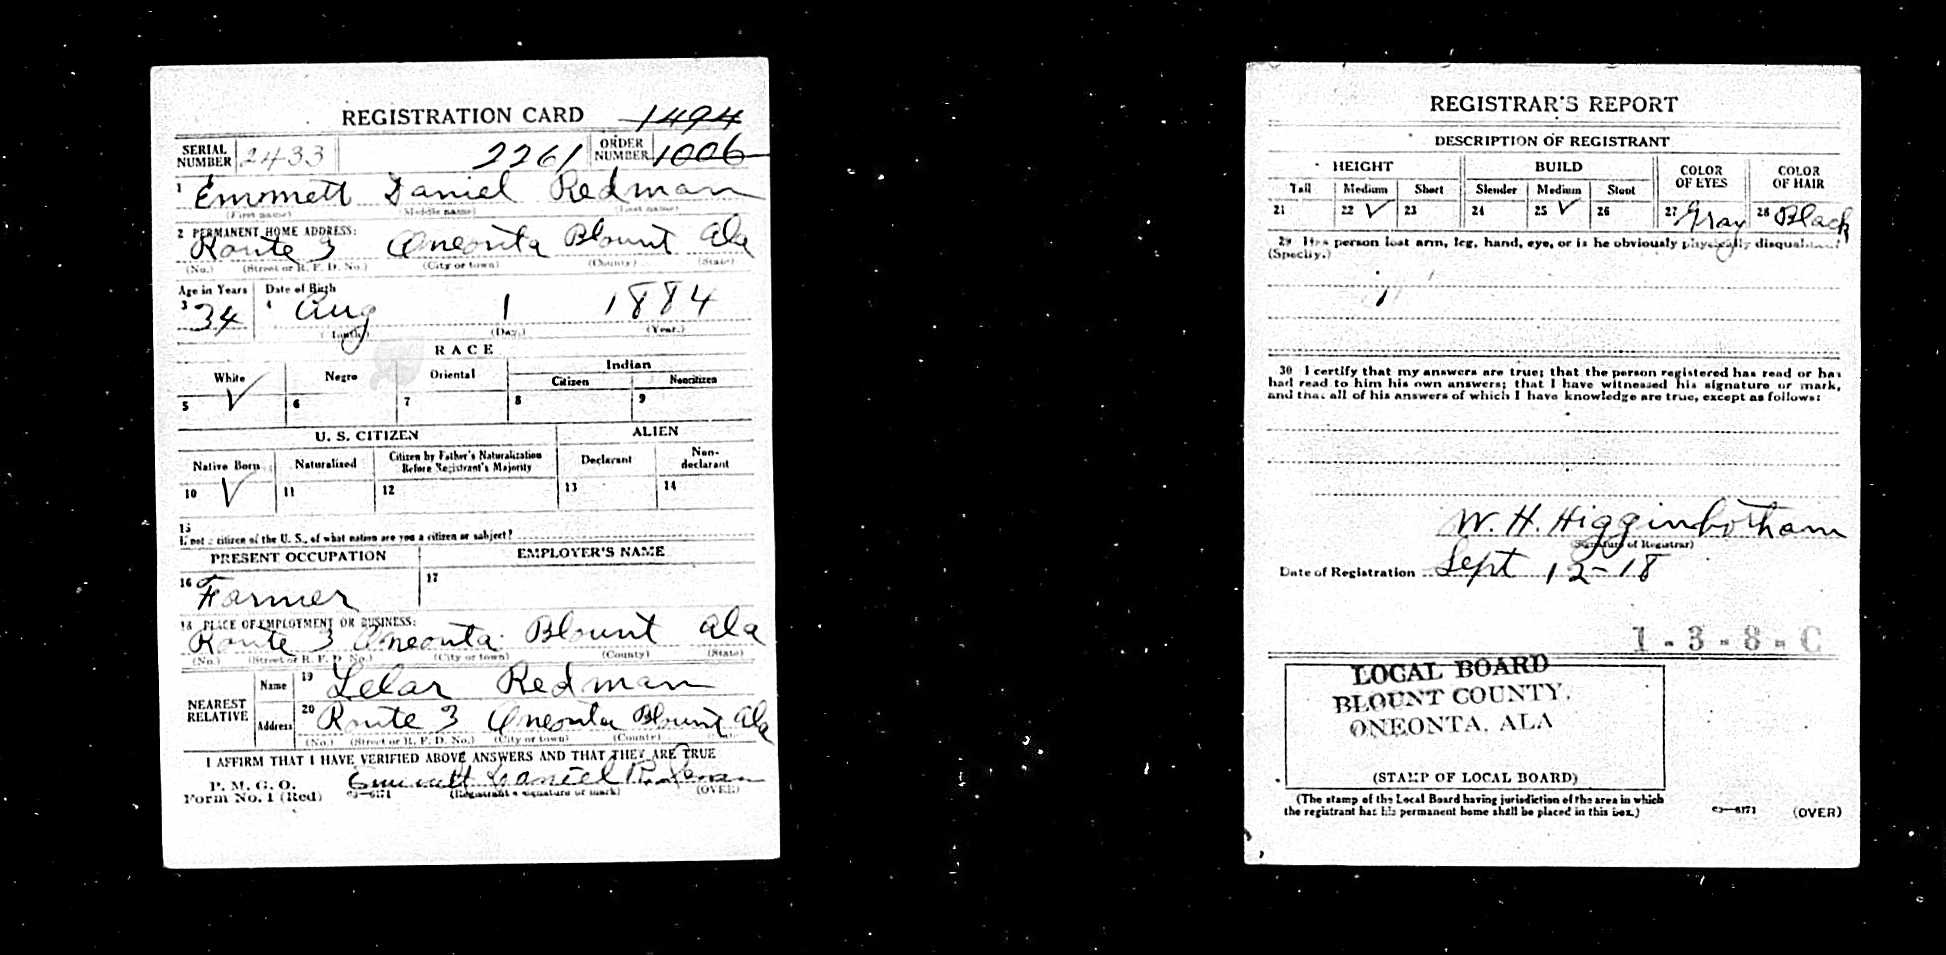 REGISTRATION CARD 1494
SERIAL NUMBER 2433 2261 ORDER NUMBER 1006
1 Emmett Daniel Redman
(First name) (Middle name) (Last name)
2 PERMANENT HOME ADDRESS:
Route 3 Oneonta Blount Ala
(No.) (Street or R. F. D. No.) (City or town) (County) (State)
Age in Years Date of Birth
3 34 4 Aug 1 1884
(Month) (Day.) (Year.)
RACE
White Negro Oriental Indian
Citizen Noncitizen
5 ✓ 6 7 8 9
U. S. CITIZEN ALIEN
Native Born Naturalized Citizen by Father's Naturalization Before Registrant's Majority Declarant Non-declarant
10 ✓ 11 12 13 14
15
If not a citizen of the U. S., of what nation are you a citizen or subject?
PRESENT OCCUPATION EMPLOYER'S NAME
16 Farmer 17
18 PLACE OF EMPLOYMENT OR BUSINESS:
Route 3 Oneonta Blount Ala
(No.) (Street or R. F. D. No.) (City or town) (County) (State)
NEAREST RELATIVE Name 19 Lelar Redman
Address 20 Route 3 Oneonta Blount Ala
(No.) (Street or R. F. D. No.) (City or town) (County)
I AFFIRM THAT I HAVE VERIFIED ABOVE ANSWERS AND THAT THEY ARE TRUE
P. M. G. O.
Form No. 1 (Red) 03—6171 Emmett Daniel Redman
(Registrant's signature or mark) (OVER)
REGISTRAR'S REPORT
DESCRIPTION OF REGISTRANT
HEIGHT BUILD COLOR OF EYES COLOR OF HAIR
Tall Medium Short Slender Medium Stout
21 22 ✓ 23 24 25 ✓ 26 27 Gray 28 Black
29 Has person lost arm, leg, hand, eye, or is he obviously physically disqualified?
(Specify.)
30 I certify that my answers are true; that the person registered has read or has
had read to him his own answers; that I have witnessed his signature or mark,
and that all of his answers of which I have knowledge are true, except as follows:
W. H. Higginbotham
(Signature of Registrar)
Date of Registration Sept 12-18
1-3-8-C
LOCAL BOARD
BLOUNT COUNTY,
ONEONTA, ALA
(STAMP OF LOCAL BOARD)
(The stamp of the Local Board having jurisdiction of the area in which
the registrant has his permanent home shall be placed in this box.)
03—6171 (OVER)